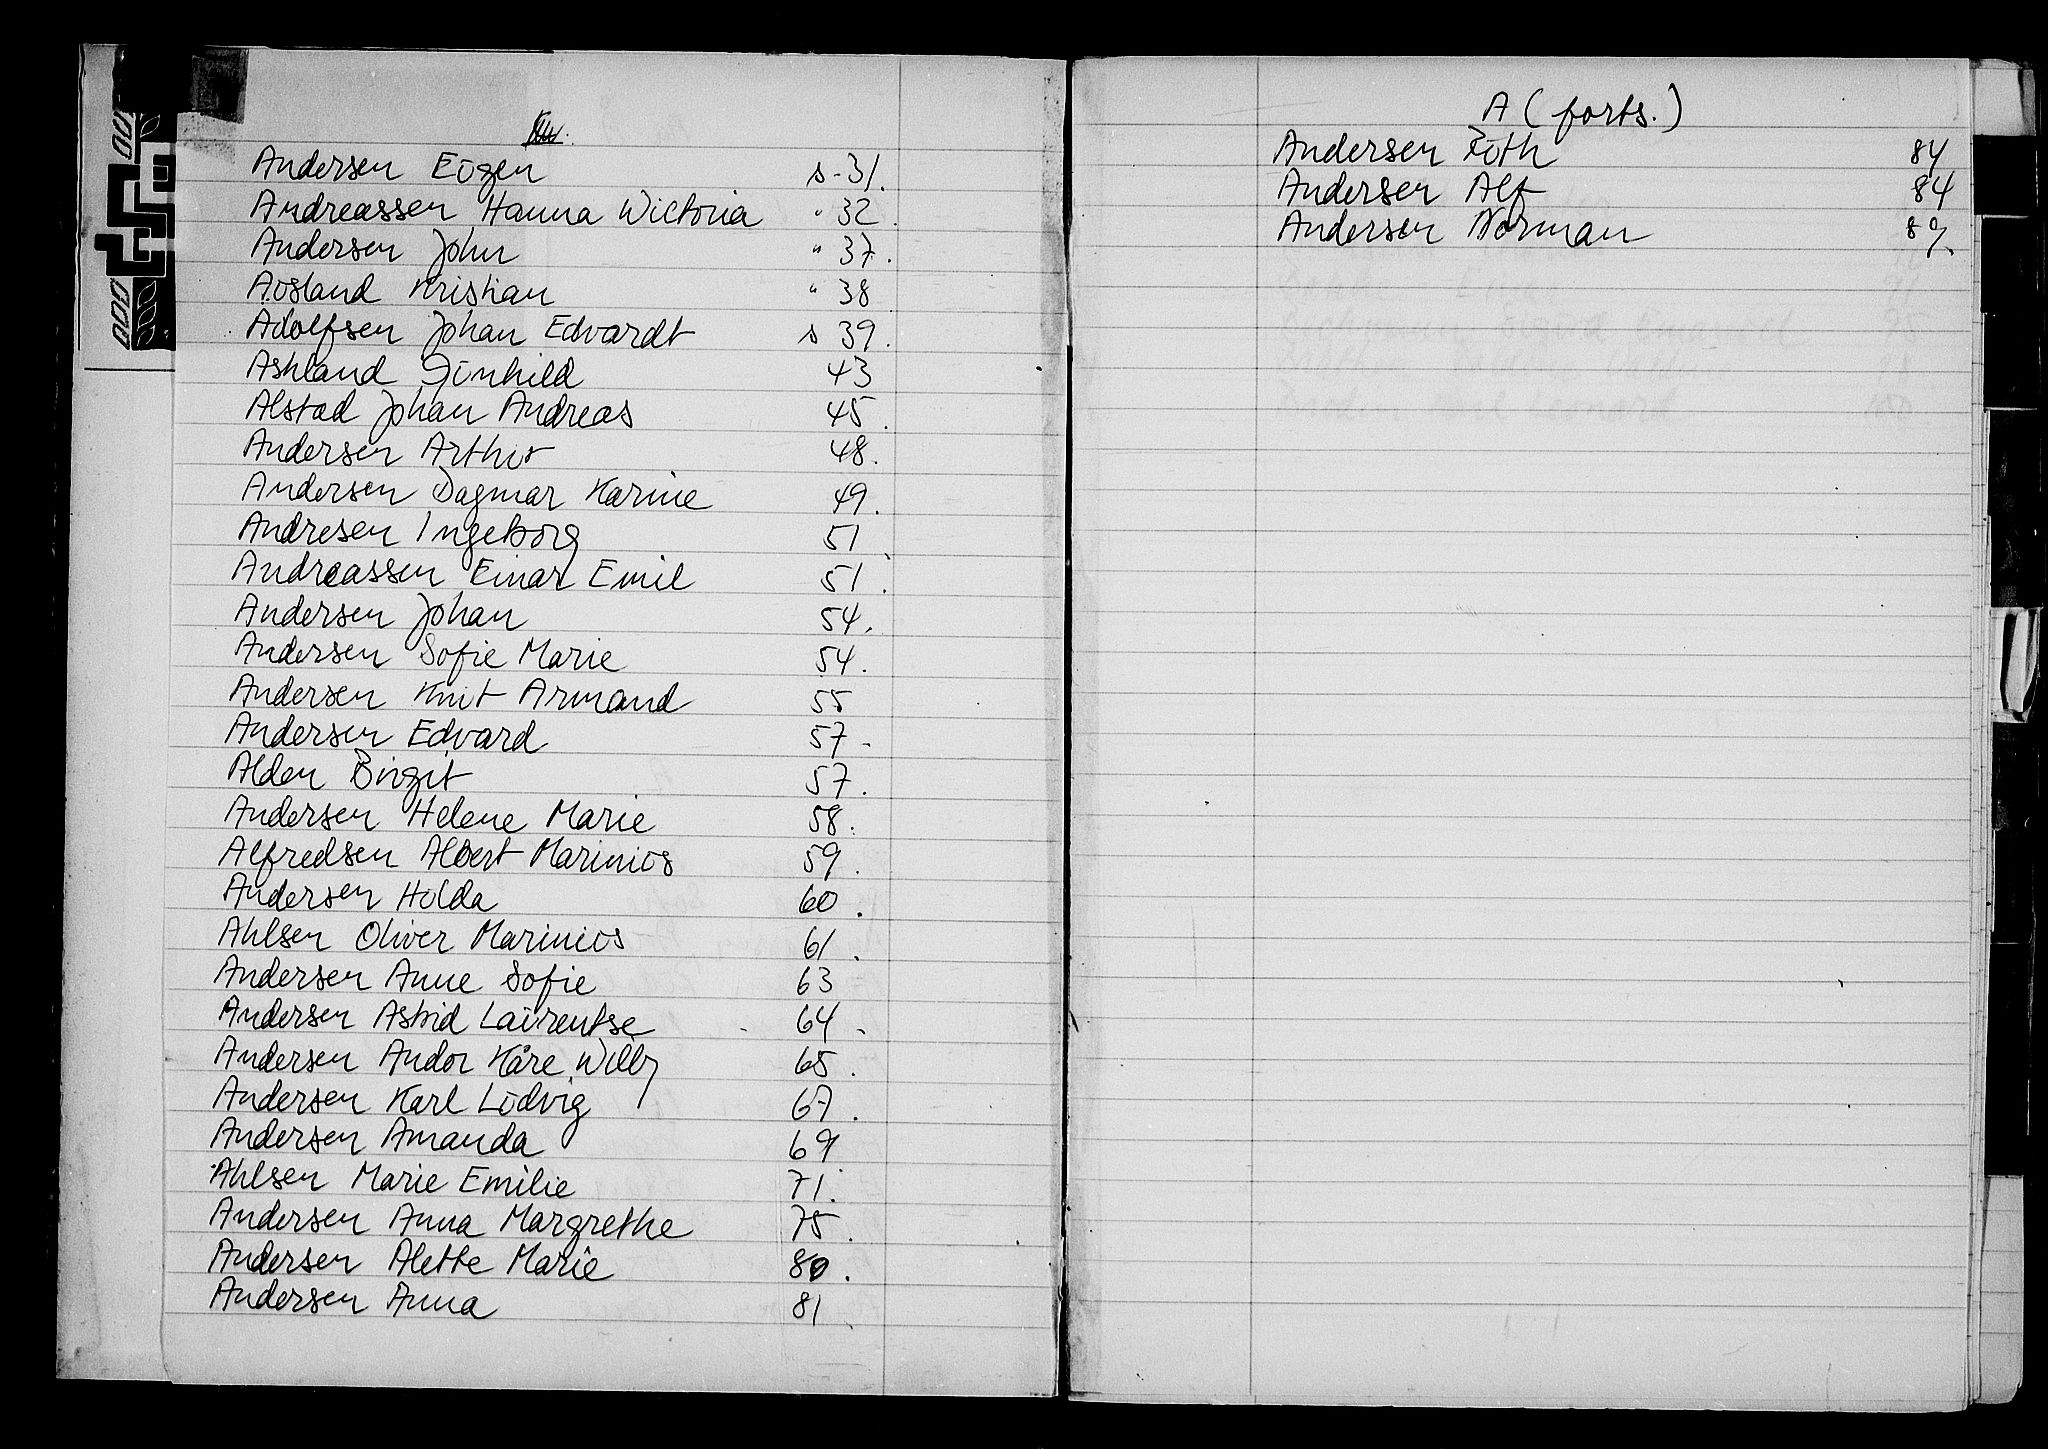 Andersen Eugen s - 31.
Andreassen Hanna Wictoria " 32.
Andersen John " 37.
Åsland Kristian " 38
Adolfsen Johan Edvardt s 39.
Ashland Gunhild 43
Alstad Johan Andreas 45.
Andersen Arthur 48.
Andersen Dagmar Karine 49.
Andresen Ingeborg 51
Andreassen Einar Emil 51.
Andersen Johan 54.
Andersen Sofie Marie 54.
Andersen Knut Armand 55
Andersen Edvard 57 -
Alden Birgit 57.
Andersen Helene Marie 58.
Alfredsen Albert Marinius 59.
Andersen Hulda 60.
Ahlsen Oliver Marinius 61.
Andersen Anne Sofie 63
Andersen Astrid Laurentse 64.
Andersen Andor Kåre Willy 65.
Andersen Karl Ludvig 67.
Andersen Amanda 69
Ahlsen Marie Emilie 71.
Andersen Anna Margrethe 75.
Andersen Alette Marie 80.
Andersen Anna 81.
A (forts.)
Andersen Ruth 84
Andersen Alf 84
Andersen Norman 89.